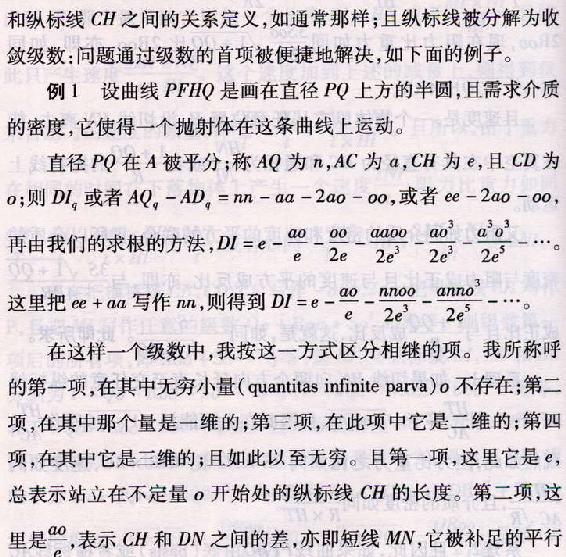 和纵标线 CH 之间的关系定义,如通常那样;且纵标线被分解为收
敛级数;问题通过级数的首项被便捷地解决,如下面的例子。
例 1 设曲线 PFHQ 是画在直径 PQ 上方的半圆,且需求介质
的密度,它使得一个抛射体在这条曲线上运动。
直径 PQ 在 A 被平分;称 AQ 为 n,AC 为 a,CH 为 e,且 CD 为
o;则 DI_q 或者 AQ_q - AD_q = nn - aa - 2ao - oo,或者 ee - 2ao - oo,
再由我们的求根的方法,DI = e - ao/e - oo/2e - aaoo/2e³ - ao³/2e³ - a³o³/2e⁵ - …。
这里把 ee + aa 写作 nn,则得到 DI = e - ao/e - nnoo/2e³ - anno³/2e⁵ - …。
在这样一个级数中,我按这一方式区分相继的项。我所称呼
的第一项,在其中无穷小量(quantitas infinite parva)o 不存在;第二
项,在其中那个量是一维的;第三项,在此项中它是二维的;第四
项,在其中它是三维的,且如此以至无穷。且第一项,这里它是 e,
总表示站立在不定量 o 开始处的纵标线 CH 的长度。第二项,这
里是 ao/e,表示 CH 和 DN 之间的差,亦即短线 MN,它被补足的平行